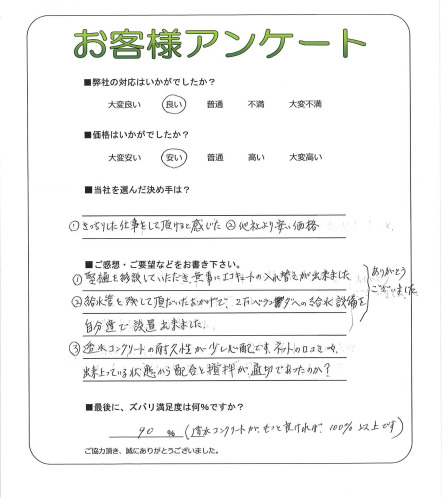 お客様アンケート
■弊社の対応はいかがでしたか?
大変良い 良い 普通 不満 大変不満
■価格はいかがでしたか?
大変安い 安い 普通 高い 大変高い
■当社を選んだ決め手は?
①きっちりした仕事をして頂けると感じた ②他社より安い価格
■ご感想・ご要望などをお書き下さい。
①堅樋を移設していただき、無事にエコキュートの入れ替えが出来ました
②給水管を残して頂いたおかげで、2Fベランダへの給水設備を
自分達で設置出来ました。
ありがとう
ございました
③透水コンクリートの耐久性が少し心配です。ネットの口コミや、
出来上っている状態から配合と攪拌が適切であったのか?
■最後に、ズバリ満足度は何%ですか?
90 % (透水コンクリートが、もっと良ければ、100%以上です)
ご協力頂き、誠にありがとうございました。